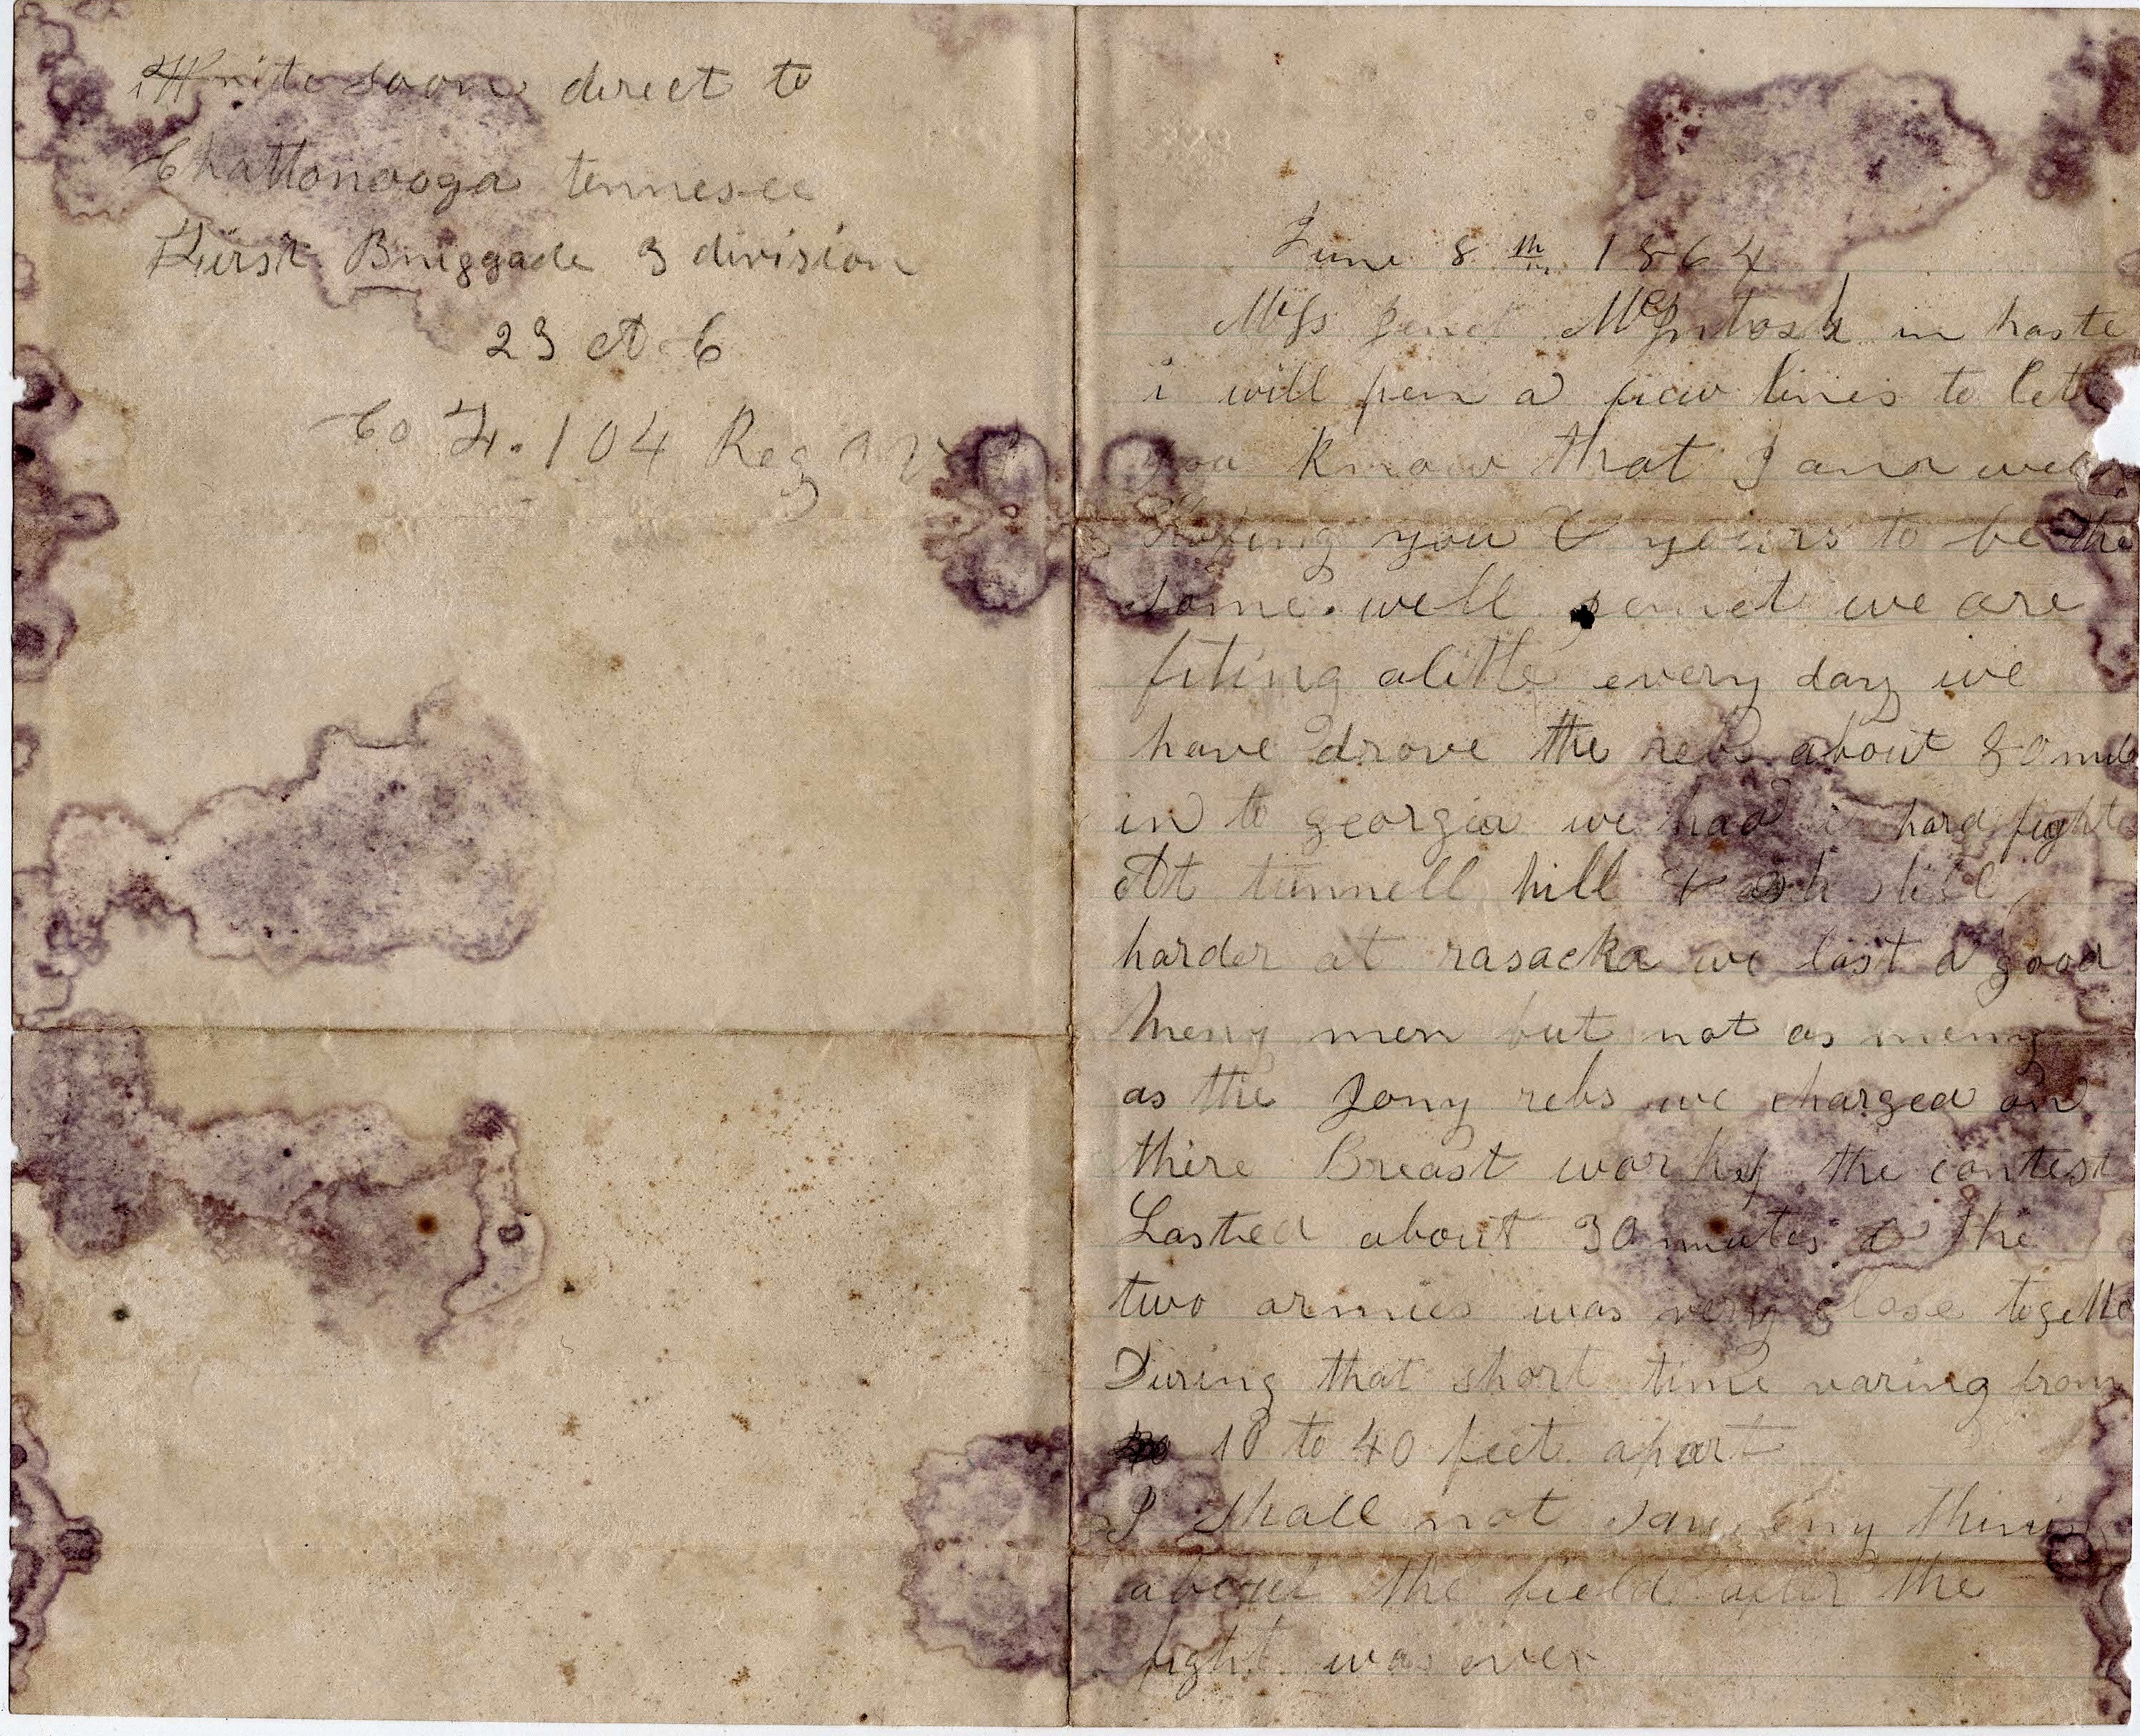 Write soon direct to
Chattonooga tennesee
First Briggade 3 division
23 A C
Co F. 104 Reg
June 8 th 1864
Miss Jenet McIntosh in haste
i will pen a few lines to let
you know that I am well
Hoping you & yours to be the
same. well jenet we are
fiting alittle every day we
have drove the rebs about 80 miles
in to georgia we had a hard fight
At tunnell hill & still
harder at rasacka we lost a good
meny men but not as meny
as the Jony rebs we charged on
there Breast works the contest
Lasted about 30 the
two armies was very close togethe
During that short time varing from
10 to 40 feet apart
I shall not say eny thing
about the field after the
fight was over